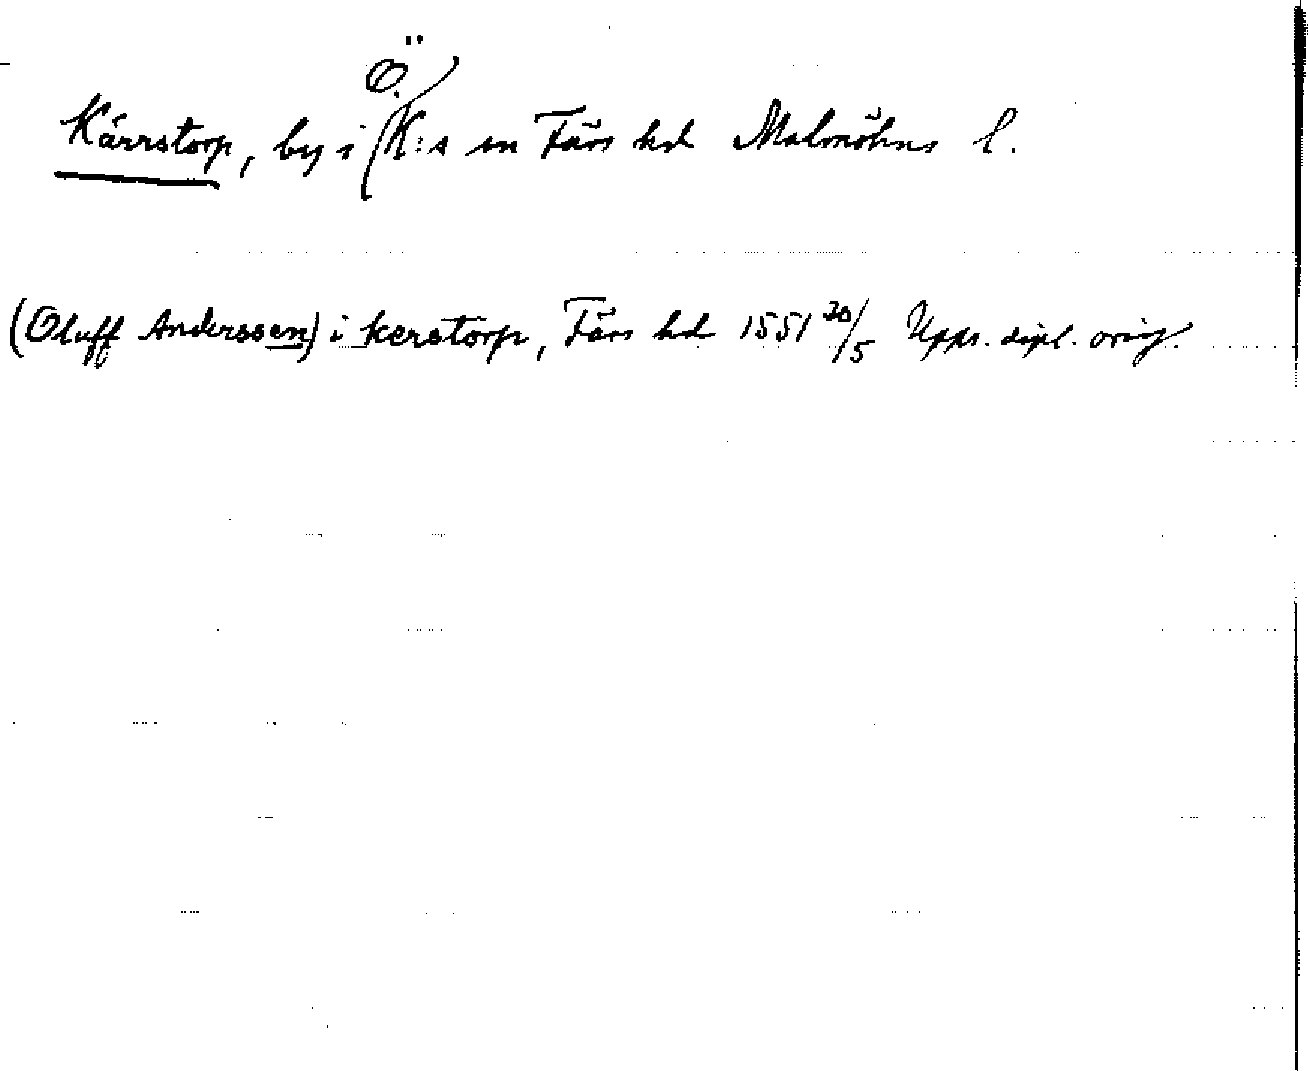 Kärrstorp, by i Ö. K:s sn Färs hd Malmöhus l.
(Oluff Anderssen) i kerstorp, Färs hd 1551 20/5 Upps. dipl. orig.